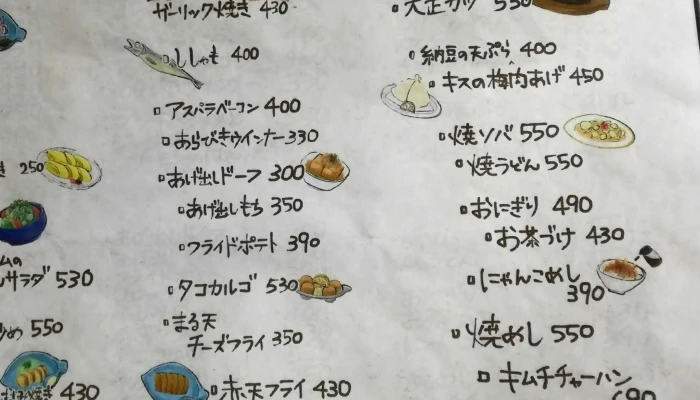 き 250
ムの
サラダ 530
め 550
焼き 430
ガーリック焼き 430
ししゃも 400
アスパラベーコン 400
あらびきウインナー 330
あげ出しドーフ 300
あげ出しもち 350
フライドポテト 390
タコカルゴ 530
まる天
チーズフライ 350
赤天フライ 430
大正カツ 550
納豆の天ぷら 400
キスの梅肉あげ 450
焼ソバ 550
焼うどん 550
おにぎり 490
お茶づけ 430
にゃんこめし
390
焼めし 550
キムチチャーハン
690